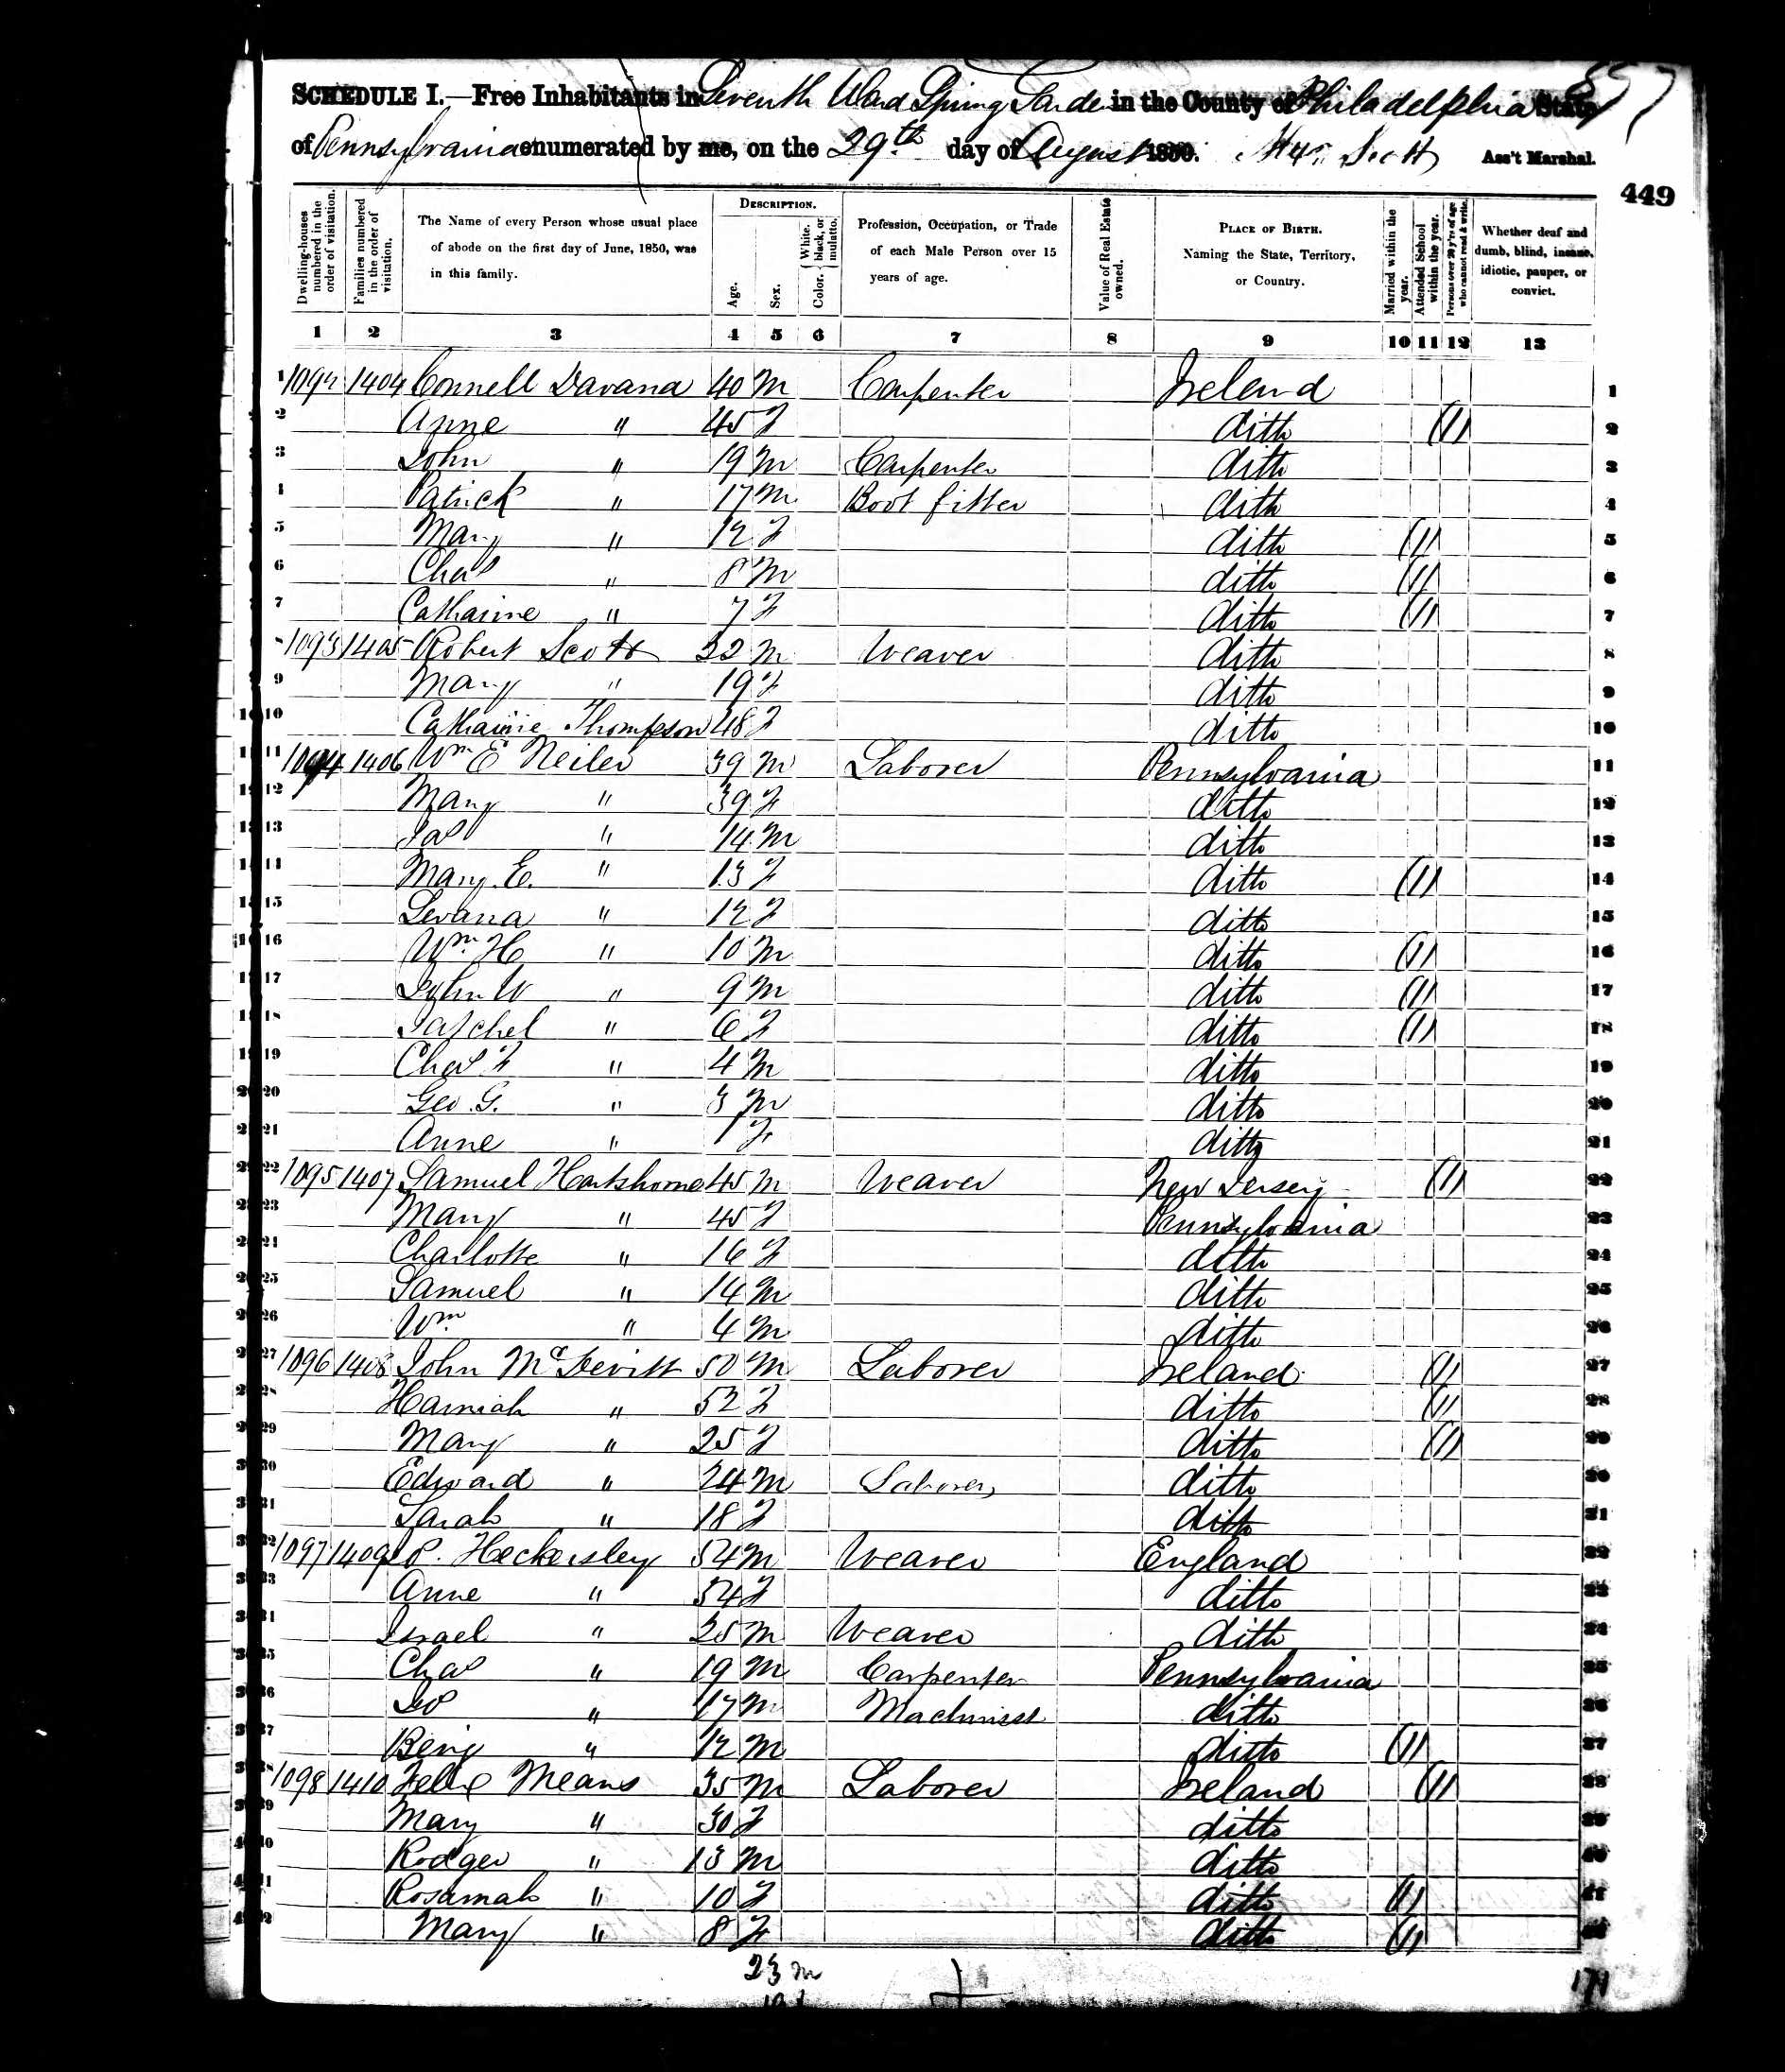 SCHEDULE I.—Free Inhabitants in Seventh Ward Spring Garden in the County of Philadelphia State
of Pennsylvania enumerated by me, on the 29th day of August 1850. Scott Ass't Marshal.
449
Dwelling-houses numbered in the order of visitation.
Families numbered in the order of visitation.
The Name of every Person whose usual place of abode on the first day of June, 1850, was in this family.
DESCRIPTION.
Age.
Sex.
Color. { White, black, or mulatto.
Profession, Occupation, or Trade of each Male Person over 15 years of age.
Value of Real Estate owned.
PLACE OF BIRTH. Naming the State, Territory, or Country.
Married within the year.
Attended School within the year.
Persons over 20 y'rs of age who cannot read & write.
Whether deaf and dumb, blind, insane, idiotic, pauper, or convict.
1 2 3 4 5 6 7 8 9 10 11 12 13
1 1092 1404 Connell Davana 40 M Carpenter Ireland 1
2 Anne " 45 F ditto 2
3 John " 19 M Carpenter ditto 3
Patrick " 17 M Boot fitter ditto 4
5 Mary " 12 F ditto 5
6 Chas " 8 M ditto 6
7 Catharine " 7 F ditto 7
1093 1405 Robert Scott 22 M Weaver ditto 8
9 Mary " 19 F ditto 9
10 Catharine Thompson 48 F ditto 10
11 1094 1406 Wm E Neiler 39 M Laborer Pennsylvania 11
12 Mary " 39 F ditto 12
13 Jas " 14 M ditto 13
Mary E. " 13 F ditto 14
15 Levana " 12 F ditto 15
16 Wm H " 10 M ditto 16
17 John W " 9 M ditto 17
18 " 6 F ditto 18
19 Chas F " 4 M ditto 19
20 Geo. G. " 3 M ditto 20
21 Anne " 1 F ditto 21
22 1095 1407 Samuel Hartshorne 45 M Weaver New Jersey 22
23 Mary " 45 F Pennsylvania 23
Charlotte " 16 F ditto 24
25 Samuel " 14 M ditto 25
26 Wm " 4 M ditto 26
27 1096 1408 John McDevitt 50 M Laborer Ireland 27
28 Hannah " 52 F ditto 28
29 Mary " 25 F ditto 29
30 Edward " 24 M Laborer ditto 30
31 Sarah " 18 F ditto 31
32 1097 1409 Heckersley 54 M Weaver England 32
33 Anne " 54 F ditto 33
Israel " 25 M Weaver ditto 34
35 Chas " 19 M Carpenter Pennsylvania 35
36 " 17 M Machinist ditto 36
37 Benj " 12 M ditto 37
38 1098 1410 Felix Means 35 M Laborer Ireland 38
39 Mary " 30 F ditto 39
40 Rodger " 13 M ditto 40
41 Rosannah " 10 F ditto 41
42 Mary " 8 F ditto
23 m